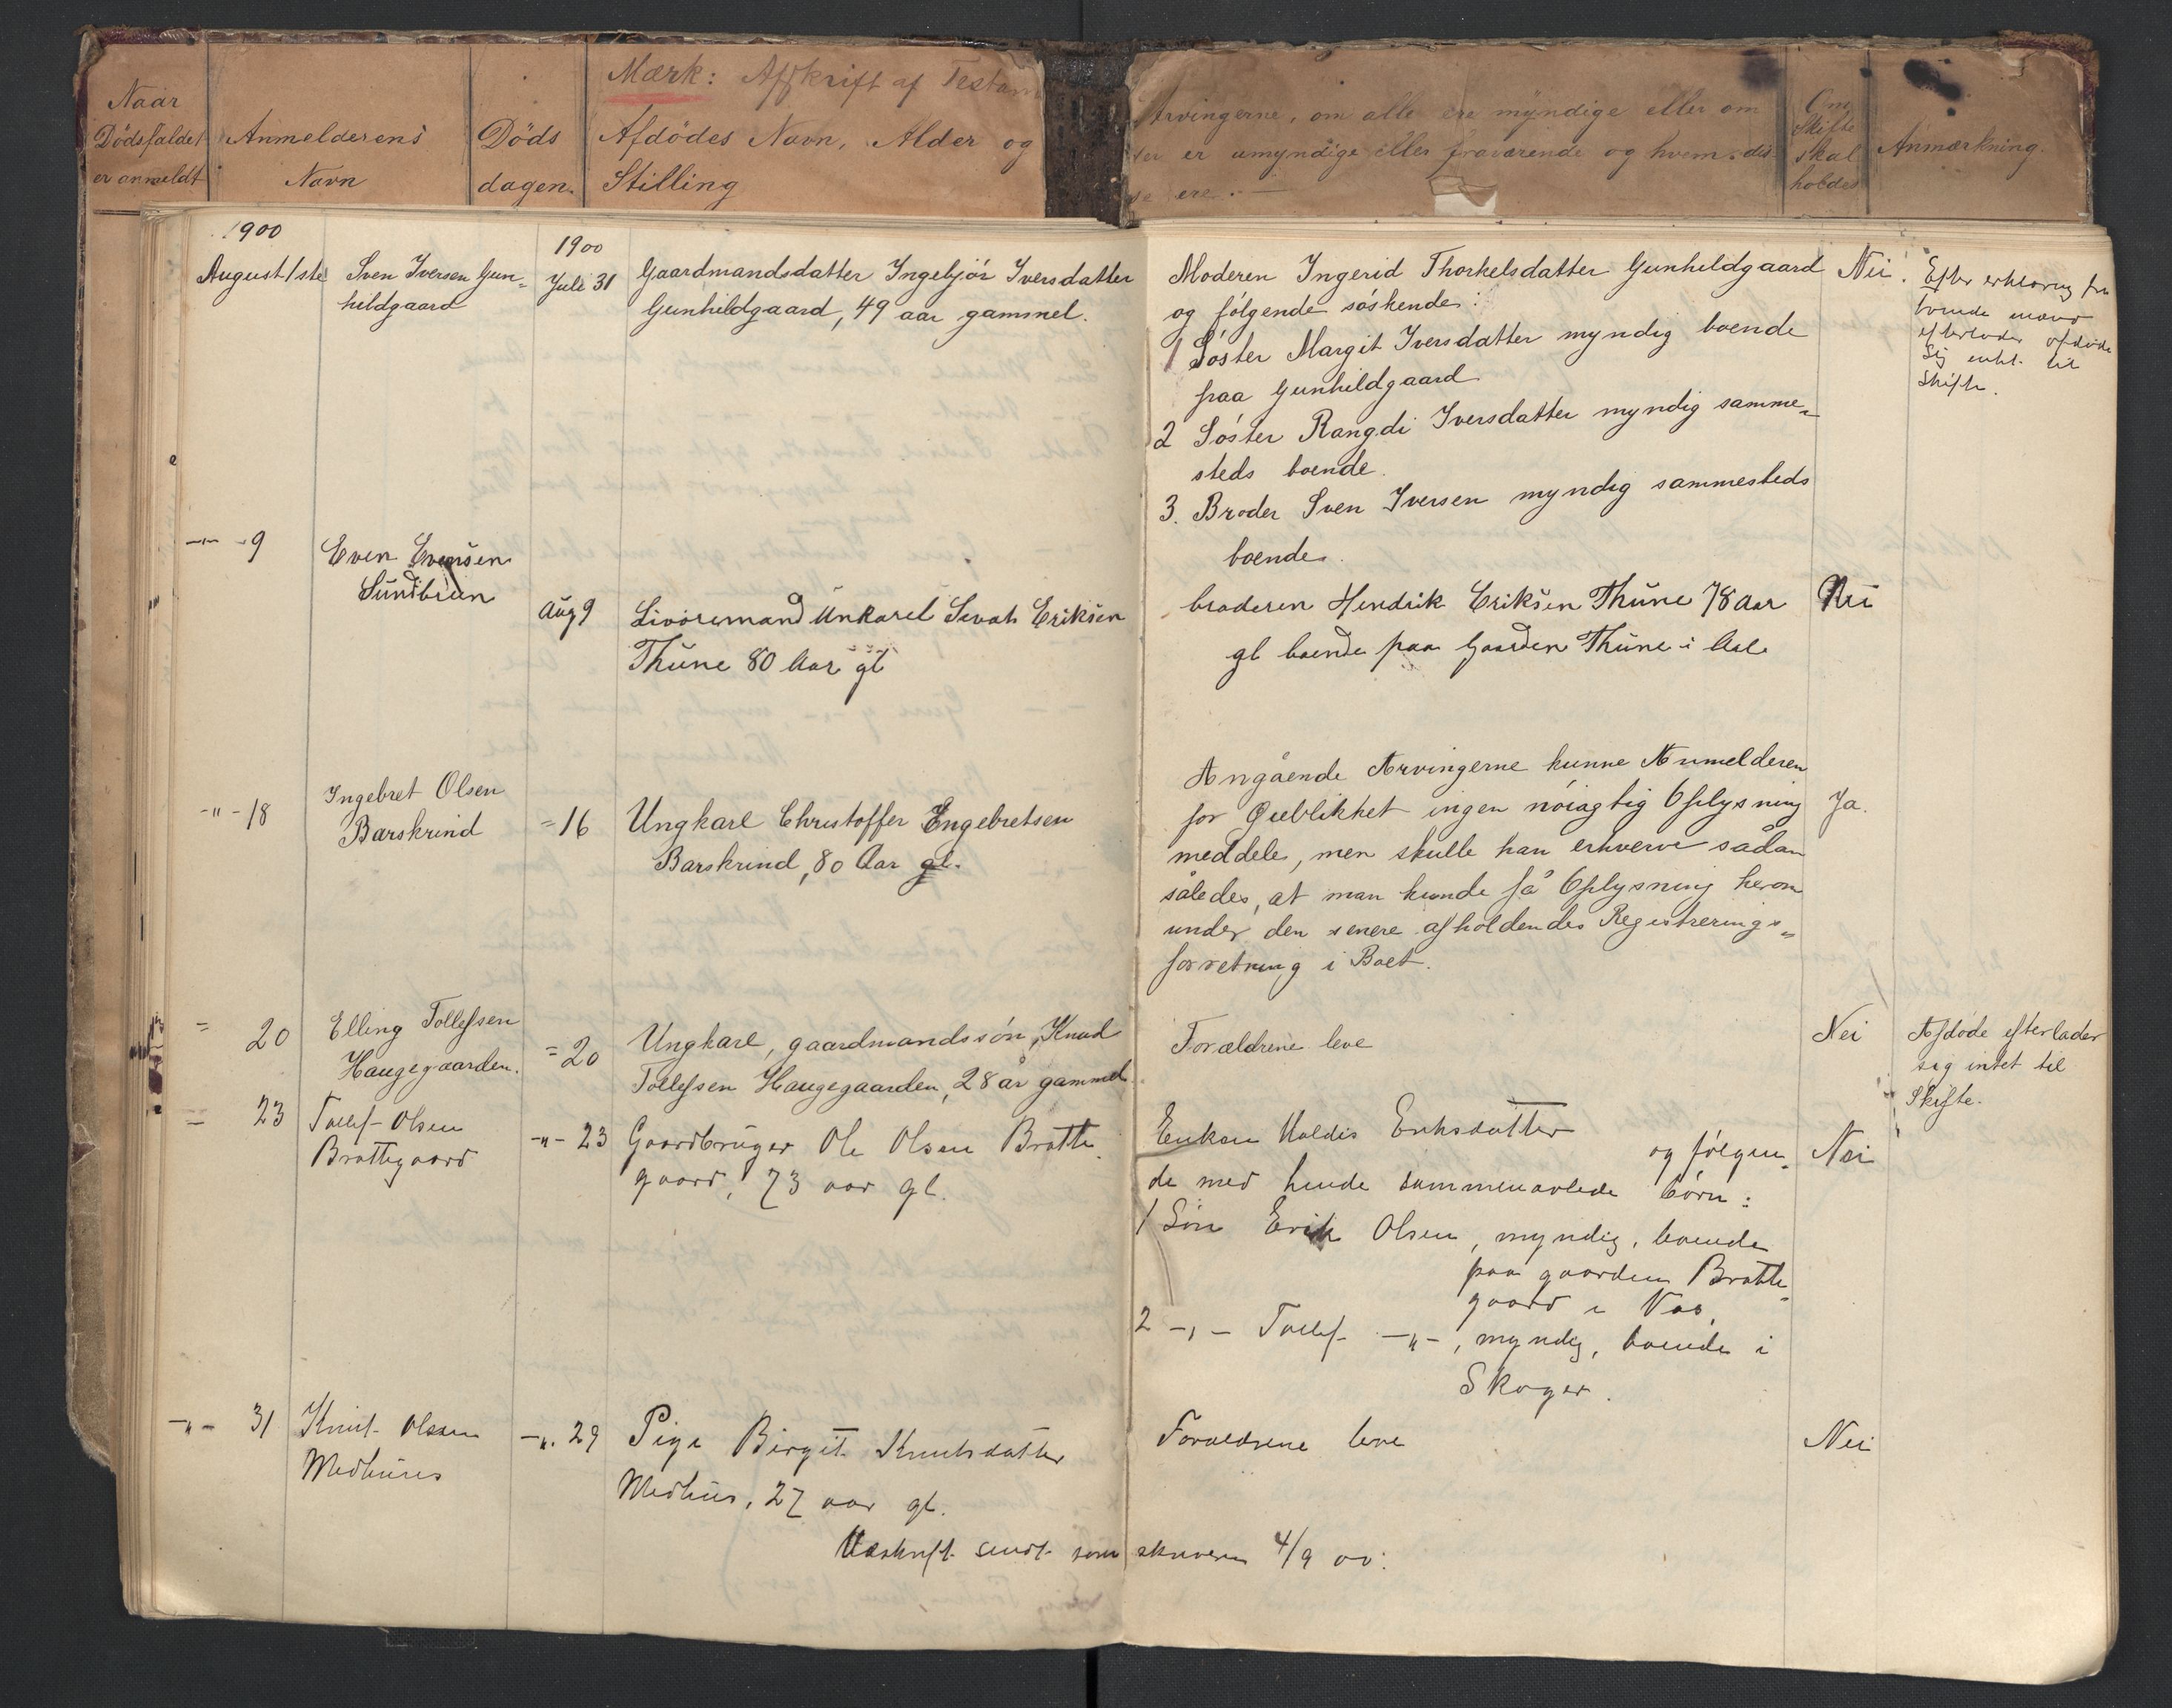 Mærk: Afskrift af Testam
Naar
Dödsfaldet
er anmeldt
Anmelderens
Navn
Döds
dagen.
Afdödes Navn, Alder og
Stilling
Arvingerne, om alle ere myndige eller om
er umyndige eller fraværende og hvem dis
se ere.
Om
Skifte
skal
holdes
Anmærkning.
1900
August 1ste
Sven Iversen Gun-
hildgaard
1900
Juli 31
Gaardmandsdatter Ingebjör Iversdatter
Gunhildgaard, 49 aar gammel.
Moderen Ingerid Thorkelsdatter Gunhildgaard
og fölgende söskende:
1 Söster Margit Iversdatter myndig boende
paa Gunhildgaard
2 Söster Rangdi Iversdatter myndig samme-
steds boende.
3. Broder Sven Iversen myndig sammesteds
boende.
Nei.
Efter erklæring fra
efterlader afdöde
sig intet til
Skifte.
-"- 9
Even Evensen
Sundbreen
Aug 9
Livöremand Unkarel Sevat Eriksen
Thune 80 Aar gl
broderen Hendrik Eriksen Thune 78 Aar
gl boende paa Gaarden Thune i Aal
Nei
-"- 18
Ingebret Olsen
Barskrind
= 16
Ungkarl Christoffer Engebretsen
Barskrind, 80 Aar gl.
Angående Arvingerne kunne Anmelderen
for Øieblikket ingen nöiagtig Oplysning
meddele, men skulle han erhverve sådan
således, at man kunde få Oplysning herom
under den senere afholdendes Registrerings-
forretning i Boet.
Ja.
= 20
Elling Tollefsen
Haugegaarden.
= 20
Ungkarl, gaardmandssön, Knud
Tollefsen Haugegaarden, 28 år gammel
Forældrene leve
Nei
Afdöde efterlader
sig intet til
Skifte.
= 23
Tollef Olsen
Brattegaard
-"- 23
Gaardbruger Ole Olsen Bratte-
gaard, 73 aar gl.
Enken Valdis Eriksdatter
og fölgen-
de med hende sammenavlede börn:
1 Sön Erik Olsen, myndig, boende
paa gaarden Bratte-
gaard i Naes,
2 -"- Tollef -"-, myndig, boende i
Skoger.
Nei
-"- 31
Knut Olsen
Medhus
-"- 29
Pige Birgit Knutsdatter
Medhus, 27 aar gl.
Forældrene leve
Nei
Udskrift sendt sorenskriveren 4/9 00.